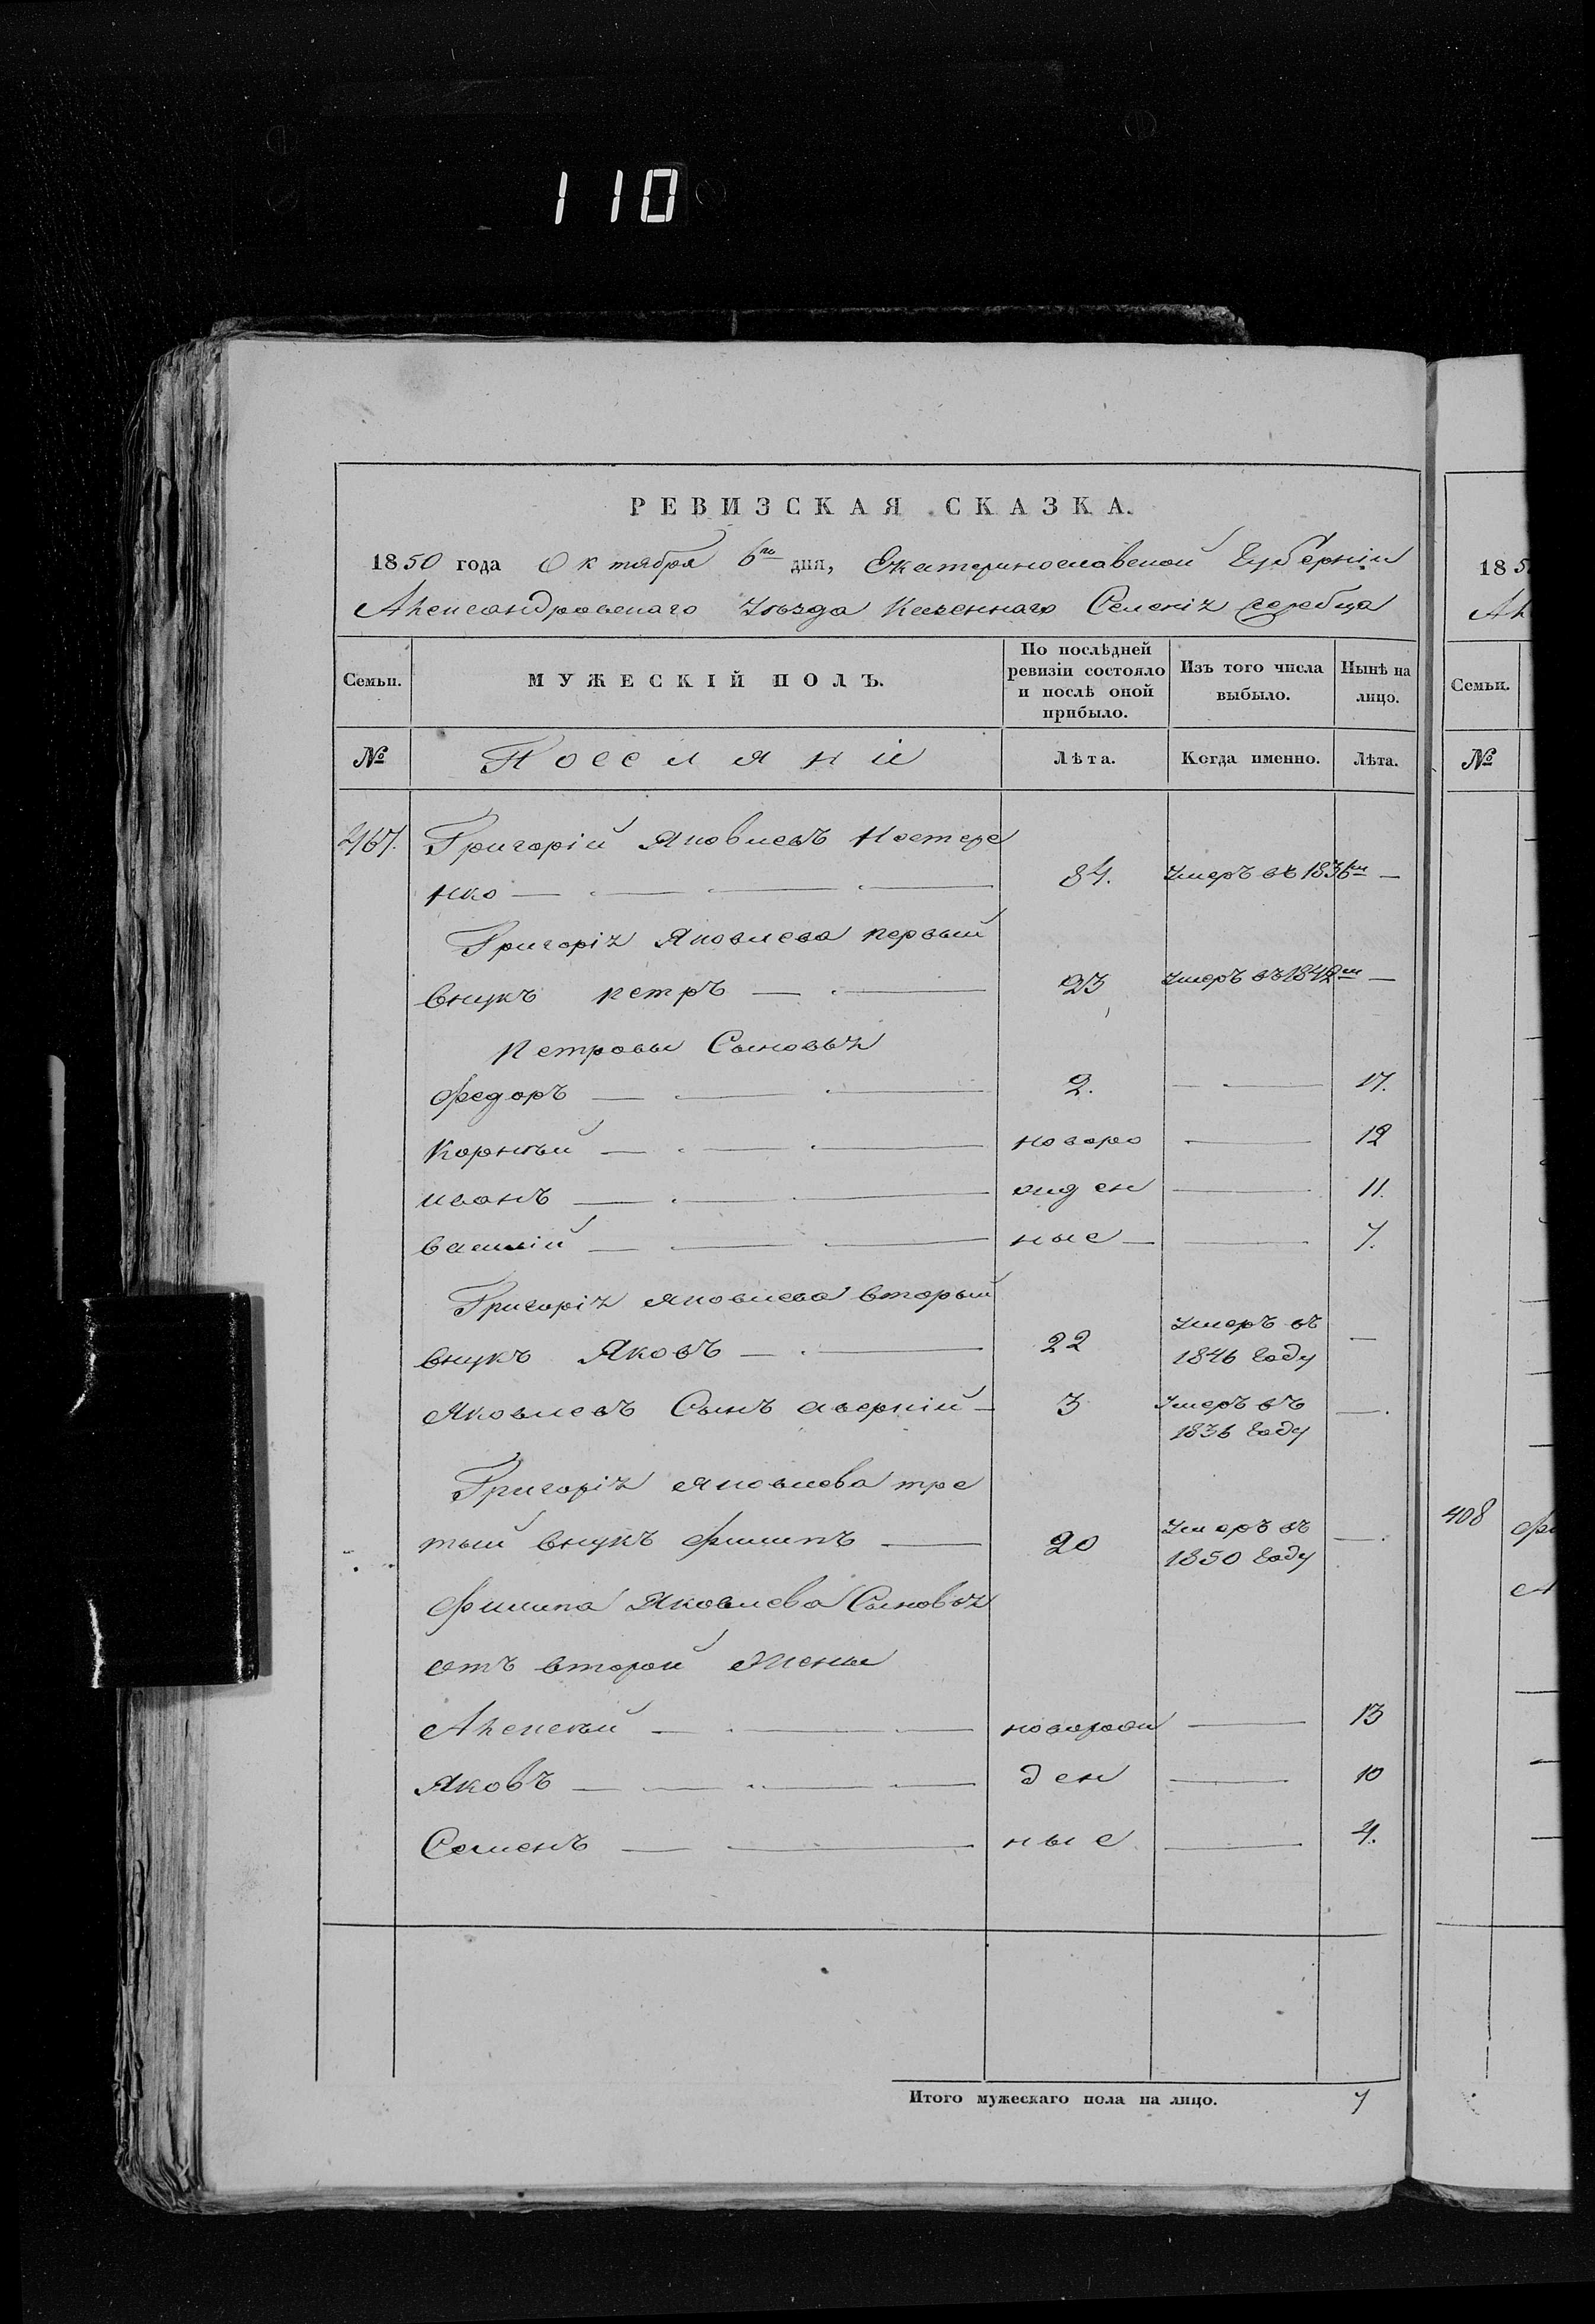 110
РЕВИЗСКАЯ СКАЗКА.
1850 года Октября 6го дня, Екатеринославской Губерніи
Александровскаго Уѣзда Казеннаго Селенія Жеребца
Семьи. МУЖЕСКІЙ ПОЛЪ. По послѣдней ревизіи состояло и послѣ оной прибыло. Изъ того числа выбыло. Нынѣ на лицо.
№ Лѣта. Когда именно. Лѣта.
Григорій Яковлевъ Нестере
нко 84. Умеръ въ 1836м
Григорія Яковлева первый
внукъ петръ 23 Умеръ въ 1842м
Петровы Сыновья
Федоръ 2. 17.
Корнѣй новоро 12
иванъ жден 11.
василій ные 7.
Григорія Яковлева вторый
внукъ Яковъ 22 Умеръ въ 1846 Году
Яковлевъ Сынъ аверкій 3 Умеръ въ 1836 Году
Григорія Яковлева тре
тый внукъ Филипъ 20 Умеръ въ 1850 Году
Филипа Яковлева Сыновья
отъ второй жены
Алексѣй новорож 13
Яковъ ден 10
Семенъ ные 4.
Итого мужескаго пола на лицо. 7
185
Ал
Семьи.
№
408 Фи